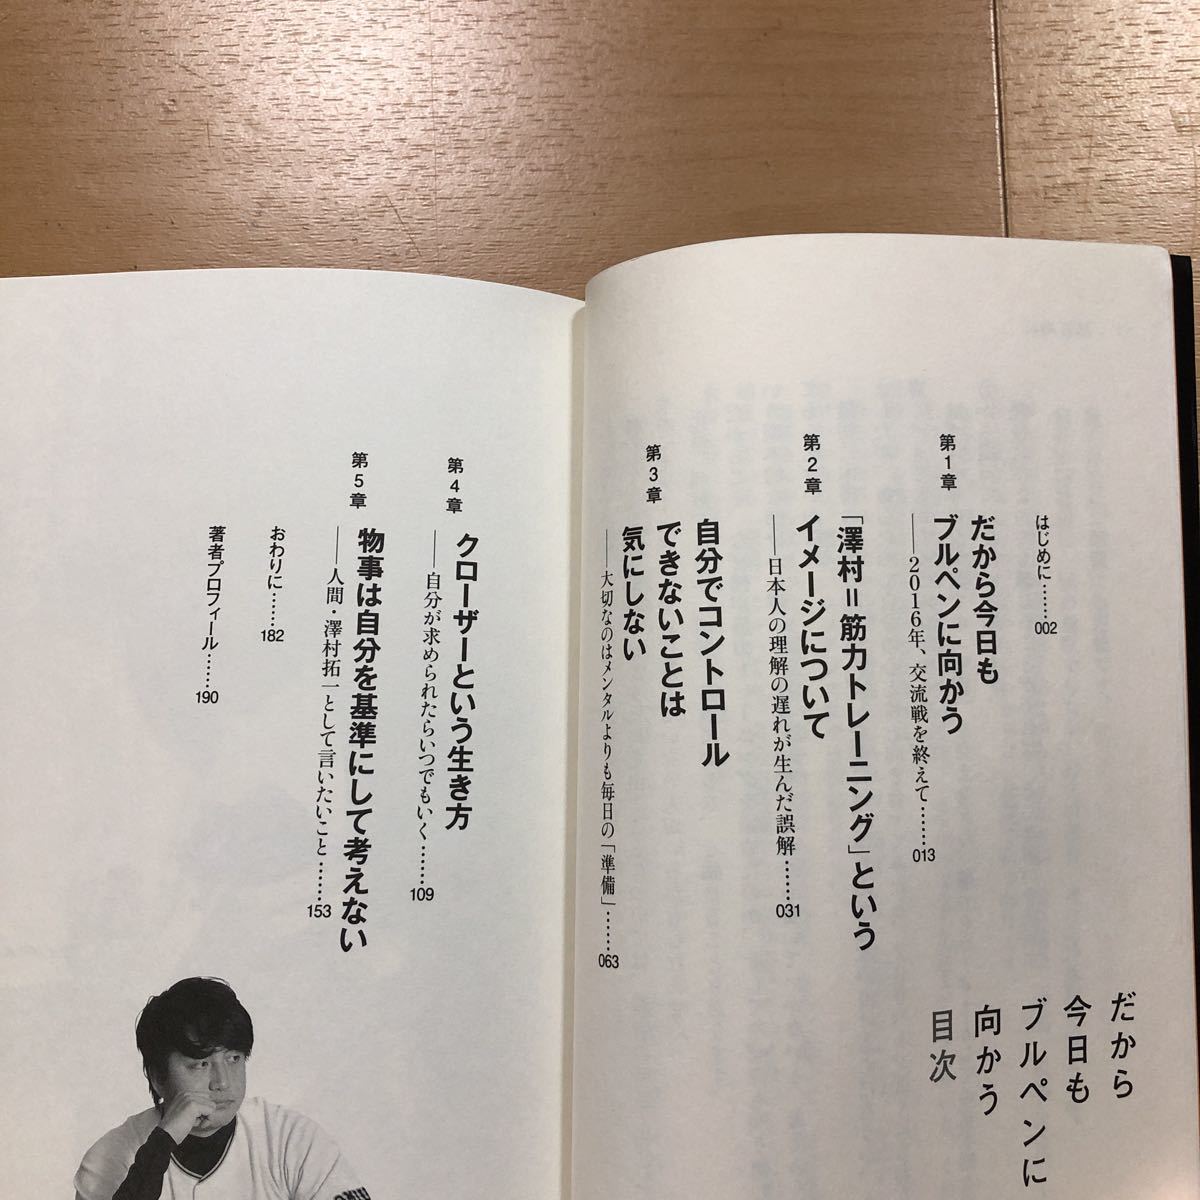 だから
今日も
ブルペンに
向かう
目次
はじめに……002
第1章
だから今日も
ブルペンに向かう
——2016年、交流戦を終えて……013
第2章
「澤村＝筋力トレーニング」という
イメージについて
——日本人の理解の遅れが生んだ誤解……031
第3章
自分でコントロール
できないことは
気にしない
——大切なのはメンタルよりも毎日の「準備」……063
第4章
クローザーという生き方
——自分が求められたらいつでもいく……109
第5章
物事は自分を基準にして考えない
——人間・澤村拓一として言いたいこと……153
おわりに……182
著者プロフィール……190